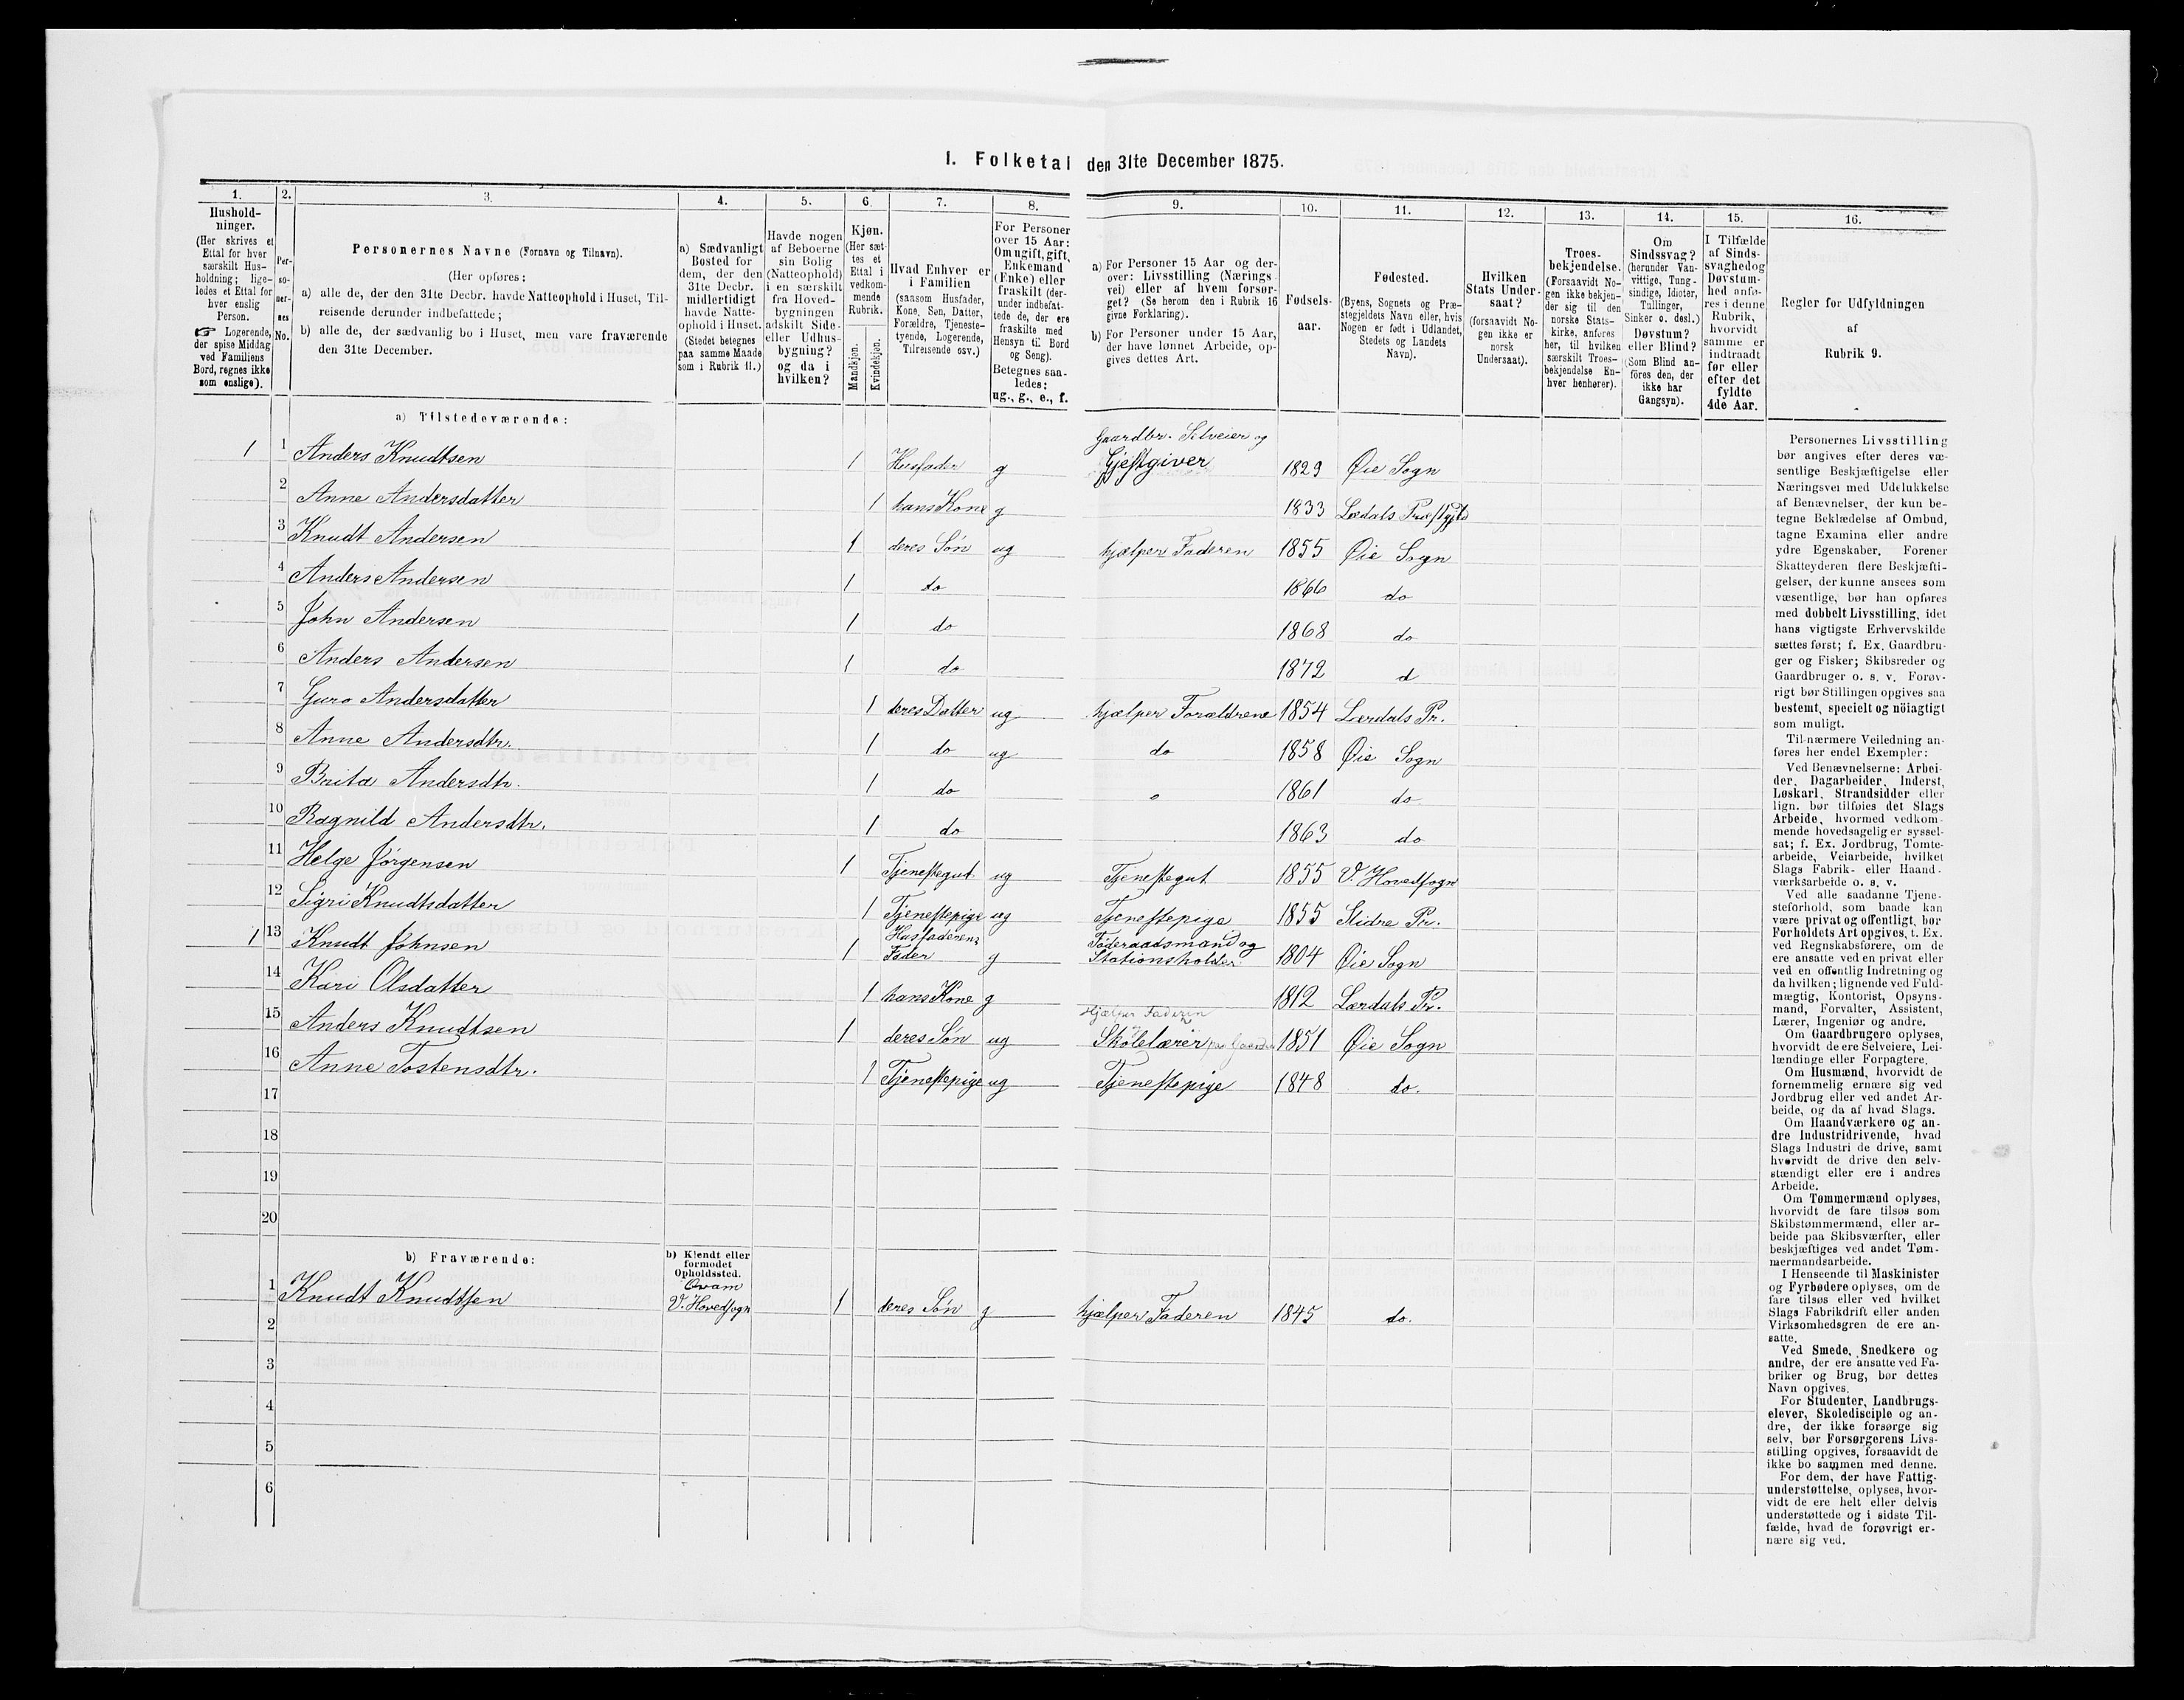 1. Folketal den 31te December 1875.
1. 2. 3. 4. 5. 6. 7. 8. 9. 10. 11. 12. 13. 14. 15. 16.
Hushold-
ninger.
(Her skrives et
Ettal for hver
særskilt Hus-
holdning; lige-
ledes et Ettal for
hver enslig
Person.
☞ Logerende,
der spise Middag
ved Familiens
Bord, regnes ikke
som enslige).
Per-
so-
ner-
nes
No.
Personernes Navne (Fornavn og Tilnavn).
(Her opføres:
a) alle de, der den 31te Decbr. havde Natteophold i Huset, Til-
reisende derunder indbefattede;
b) alle de, der sædvanlig bo i Huset, men vare fraværende
den 31te December.
a) Sædvanligt
Bosted for
dem, der den
31te Decbr.
midlertidigt
havde Natte-
ophold i Huset.
(Stedet betegnes
paa samme Maade
som i Rubrik 11.)
Havde nogen
af Beboerne
sin Bolig
(Natteophold)
i en særskilt
fra Hoved-
bygningen
adskilt Side-
eller Udhus-
bygning?
og da i
hvilken?
Kjøn.
(Her sæt-
tes et
Ettal i
vedkom-
mende
Rubrik.
Mandkjøn.
Kvindekjøn.
Hvad Enhver er
i Familien
(saasom Husfader,
Kone, Søn, Datter,
Forældre, Tjeneste-
tyende, Logerende,
Tilreisende osv.)
For Personer
over 15 Aar:
Om ugift, gift,
Enkemand
(Enke) eller
fraskilt (der-
under indbefat-
tede de, der ere
fraskilte med
Hensyn til Bord
og Seng).
Betegnes saa-
ledes:
ug., g., e., f.
a) For Personer 15 Aar og der-
over: Livsstilling (Nærings-
vei) eller af hvem forsør-
get? (Se herom den i Rubrik 16
givne Forklaring).
b) For Personer under 15 Aar,
der have lønnet Arbeide, op-
gives dettes Art.
Fødsels-
aar.
Fødested.
(Byens, Sognets og Præ-
stegjeldets Navn eller, hvis
Nogen er født i Udlandet,
Stedets og Landets
Navn).
Hvilken
Stats Under-
saat?
(forsaavidt No-
gen ikke er
norsk
Undersaat).
Troes-
bekjendelse.
(Forsaavidt No-
gen ikke bekjen-
der sig til den
norske Stats-
kirke, anføres
her, til hvilken
særskilt Troes-
bekjendelse En-
hver henhører).
Om
Sindssvag?
(herunder Van-
vittige, Tung-
sindige, Idioter,
Tullinger,
Sinker o. desl.)
Døvstum?
eller Blind?
(Som Blind an-
føres den, der
ikke har
Gangsyn).
I Tilfælde
af Sinds-
svaghed og
Døvstum-
hed anfø-
res i denne
Rubrik,
hvorvidt
samme er
indtraadt
før eller
efter det
fyldte
4de Aar.
Regler for Udfyldningen
af
Rubrik 9.
a) Tilstedeværende:
Gaardbr. Selveier og
1 1 Anders Knudtsen 1 Husfader g Gjestgiver 1829 Øie Sogn
2 Anne Andersdatter 1 hans Kone g 1833 Lædals Præstgjld
3 Knudt Andersen 1 deres Søn ug hjælper Faderen 1855 Øie Sogn
4 Anders Andersen 1 do 1866 do
5 John Andersen 1 do 1868 do
6 Anders Andersen 1 do 1872 d
7 Guro Andersdatter 1 deres Datter ug hjælper Forældrene 1854 Lærdals Pr.
8 Anne Andersdtr. 1 do ug do 1858 Øie Sogn
9 Brita Andersdtr. 1 do 1861 do
10 Ragnild Andersdtr. 1 do 1863 do
11 Helge Jørgensen 1 Tjenestegut ug Tjenestegut 1855 V. Hovedsogn
12 Sigri Knudtsdatter 1 Tjenestepige ug Tjenestepige 1855 Slidre Pr.
Husfaderens Føderaadsmand og
1 13 Knudt Johnsen 1 Fader g Stationsholder 1804 Øie Sogn
14 Kari Olsdatter 1 hans Kone g 1812 Lærdals Pr.
Hjælper Faderen
15 Anders Knudtsen 1 deres Søn ug Skolelærer paa Gaarden 1851 Øie Sogn
16 Anne Tostensdtr. 1 Tjenestepige ug Tjenestepige 1848 do.
17
18
19
20
b) Fraværende:
b) Kjendt eller
formodet
Opholdssted.
Qvam
1 Knudt Knudtsen V. Hovedsogn 1 deres Søn g hjælper Faderen 1845 do.
2
3
4
5
6
Personernes Livsstilling
bør angives efter deres væ-
sentlige Beskjæftigelse eller
Næringsvei med Udelukkelse
af Benævnelser, der kun be-
tegne Beklædelse af Ombud,
tagne Examina eller andre
ydre Egenskaber. Forener
Skatteyderen flere Beskjæfti-
gelser, der kunne ansees som
væsentlige, bør han opføres
med dobbelt Livsstilling, idet
hans vigtigste Erhvervskilde
sættes først; f. Ex. Gaardbru-
ger og Fisker; Skibsreder og
Gaardbruger o. s. v. Forøv-
rigt bør Stillingen opgives saa
bestemt, specielt og nöiagtigt
som muligt.
Til nærmere Veiledning an-
føres her endel Exempler:
Ved Benævnelserne: Arbei-
der, Dagarbeider, Inderst,
Løskarl, Strandsidder eller
lign. bør tilføies det Slags
Arbeide, hvormed vedkom-
mende hovedsagelig er syssel-
sat; f. Ex. Jordbrug, Tomte-
arbeide, Veiarbeide, hvilket
Slags Fabrik- eller Haand-
værksarbeide o. s. v.
Ved alle saadanne Tjene-
steforhold, som baade kan
være privat og offentligt, bør
Forholdets Art opgives, t. Ex.
ved Regnskabsførere, om de
ere ansatte ved en privat eller
ved en offentlig Indretning og
da hvilken; lignende ved Fuld-
mægtig, Kontorist, Opsyns-
mand, Forvalter, Assistent,
Lærer, Ingeniør og andre.
Om Gaardbrugere oplyses,
hvorvidt de ere Selveiere, Lei-
lændinge eller Forpagtere.
Om Husmænd, hvorvidt de
fornemmelig ernære sig ved
Jordbrug eller ved andet Ar-
beide, og da af hvad Slags.
Om Haandværkere og an-
dre Industridrivende, hvad
Slags Industri de drive, samt
hvorvidt de drive den selv-
stændigt eller ere i andres
Arbeide.
Om Tømmermænd oplyses,
hvorvidt de fare tilsøs som
Skibstømmermænd, eller ar-
beide paa Skibsværfter, eller
beskjæftiges ved andet Tøm-
mermandsarbeide.
I Henseende til Maskinister
og Fyrbødere oplyses, om de
fare tilsøs eller ved hvilket
Slags Fabrikdrift eller anden
Virksomhedsgren de ere an-
satte.
Ved Smede, Snedkere og
andre, der ere ansatte ved Fa-
briker og Brug, bør dettes
Navn opgives.
For Studenter, Landbrugs-
elever, Skoledisciple og an-
dre, der ikke forsørge sig
selv, bør Forsørgerens Livs-
stilling opgives, forsaavidt de
ikke bo sammen med denne.
For dem, der have Fattig-
understøttelse, oplyses, hvor-
vidt de ere helt eller delvis
understøttede og i sidste Til-
fælde, hvad de forøvrigt er-
nære sig ved.